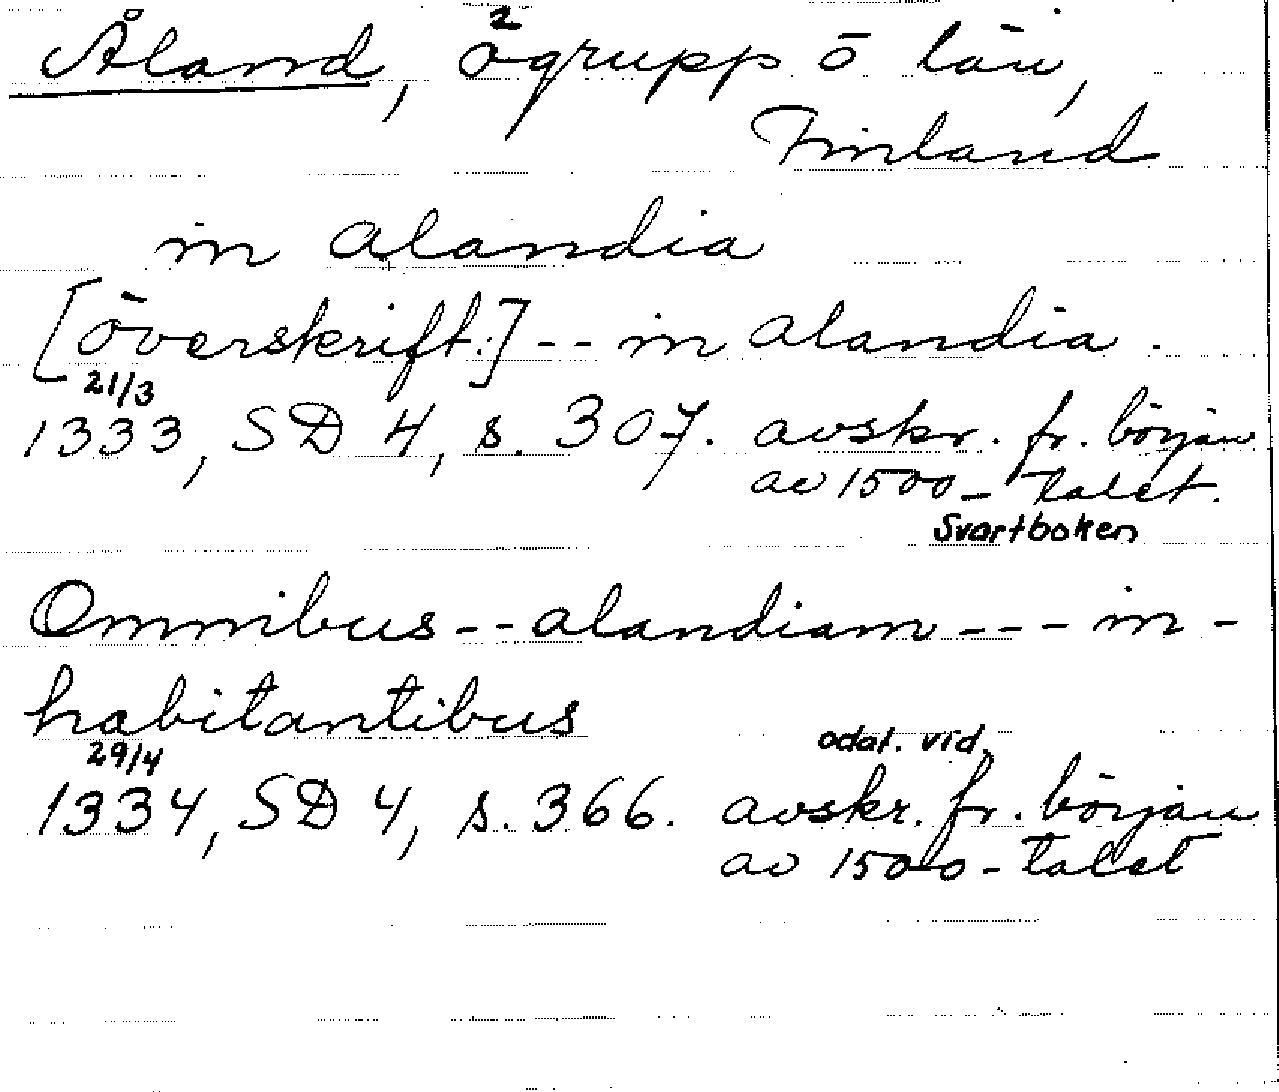 Åland, ögrupp o län,
2
Finland
in alandia
[överskrift:] -- in alandia.
21/3
1333, SD 4, s. 307. avskr. fr. början
av 1500-talet.
Svartboken
Omnibus -- alandiam --- in-
habitantibus
29/4 odat. vid.
1334, SD 4, s. 366. avskr. fr. början
av 1500-talet